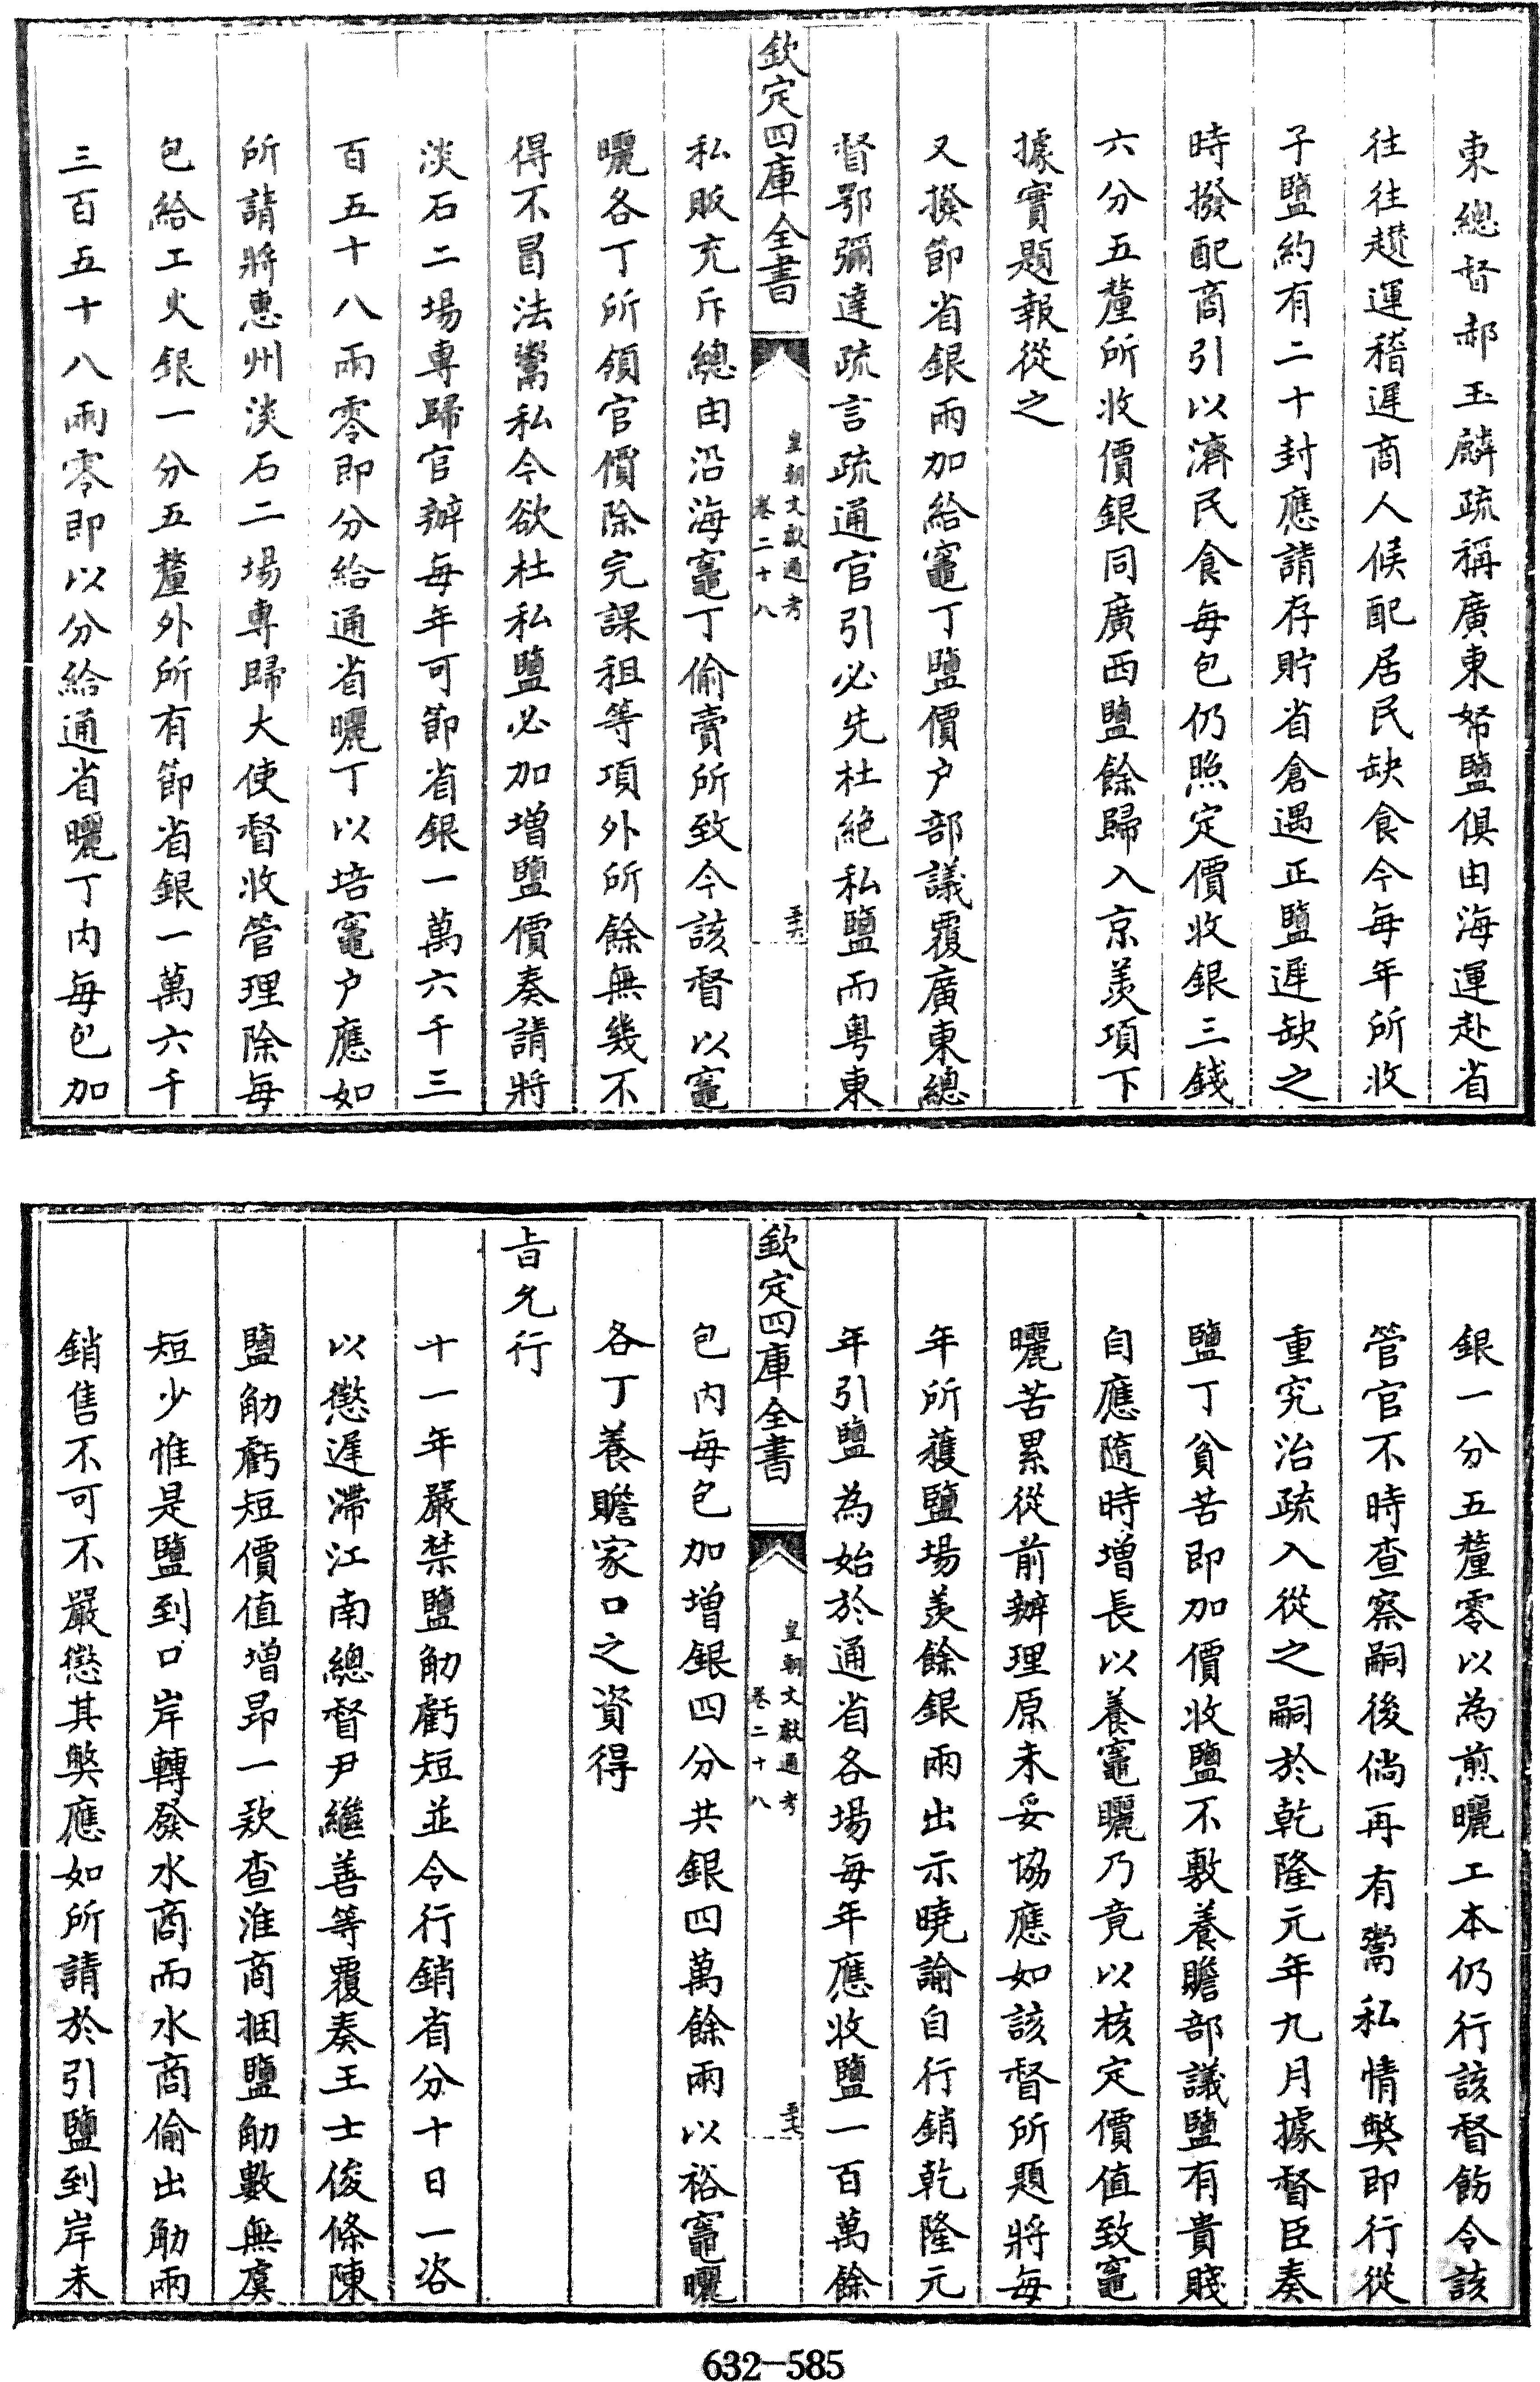 東總督郝玉麟疏稱廣東帑鹽俱由海運赴省
往往趲運稽遲商人候配居民缺食今每年所收
子鹽約有二十封應請存貯省倉遇正鹽遲缺之
時撥配商引以濟民食每包仍照定價收銀三錢
六分五釐所收價銀同廣西鹽餘歸入京羡項下
據實題報從之
又撥節省銀兩加給竈丁鹽價户部議覆廣東總
督鄂彌達疏言疏通官引必先杜絶私鹽而粤東
欽定四庫全書
皇朝文獻通考
卷二十八
私販充斥總由沿海竈丁偷賣所致今該督以竈
曬各丁所領官價除完課租等項外所餘無幾不
得不冒法鬻私今欲杜私鹽必加增鹽價奏請將
淡石二場專歸官辦每年可節省銀一萬六千三
百五十八兩零即分給通省曬丁以培竈户應如
所請將惠州淡石二場專歸大使督收管理除每
包給工火銀一分五釐外所有節省銀一萬六千
三百五十八兩零即以分給通省曬丁内每包加
銀一分五釐零以為煎曬工本仍行該督飭令該
管官不時查察嗣後倘再有鬻私情弊即行從
重究治疏入從之嗣於乾隆元年九月據督臣奏
鹽丁貧苦即加價收鹽不敷養贍部議鹽有貴賤
自應隨時增長以養竈曬乃竟以核定價值致竈
曬苦累從前辦理原未妥協應如該督所題將每
年所獲鹽場羡餘銀兩出示曉諭自行銷乾隆元
年引鹽為始於通省各場每年應收鹽一百萬餘
欽定四庫全書
皇朝文獻通考
卷二十八
包内每包加增銀四分共銀四萬餘兩以裕竈曬
各丁養贍家口之資得
旨允行
十一年嚴禁鹽觔虧短並令行銷省分十日一咨
以懲遲滯江南總督尹繼善等覆奏王士俊條陳
鹽觔虧短價值增昂一款查淮商捆鹽觔數無虞
短少惟是鹽到口岸轉發水商而水商偷出觔兩
銷售不可不嚴懲其弊應如所請於引鹽到岸未
632-585